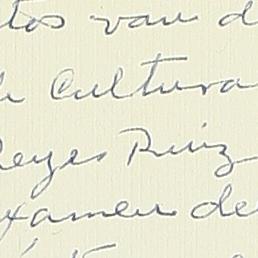 tos van d
de Cultura
Reyes Ruiz
examen de